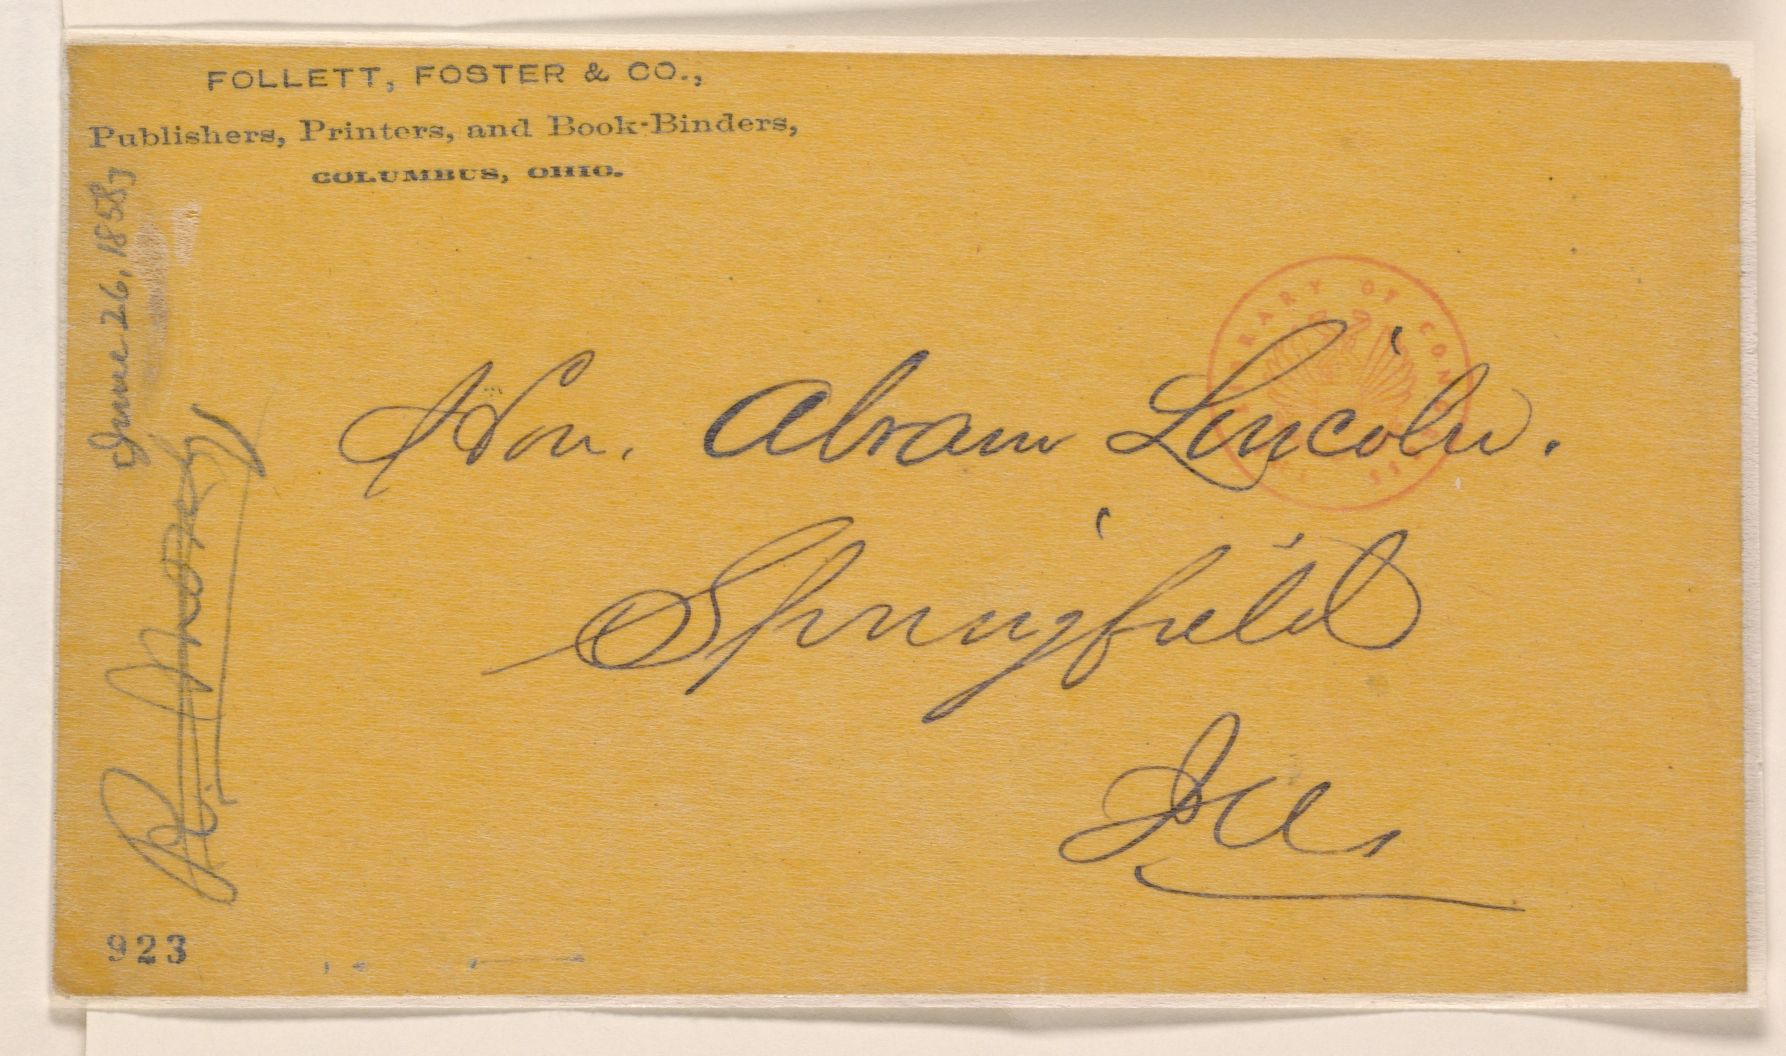 FOLLETT, FOSTER & CO.,
Publishers, Printers, and Book-Binders,
COLUMBUS, OHIO.
June 26, 1858]
Hon. Abram Lincoln.
Springfield
Ills
LIBRARY OF CONGRESS
923